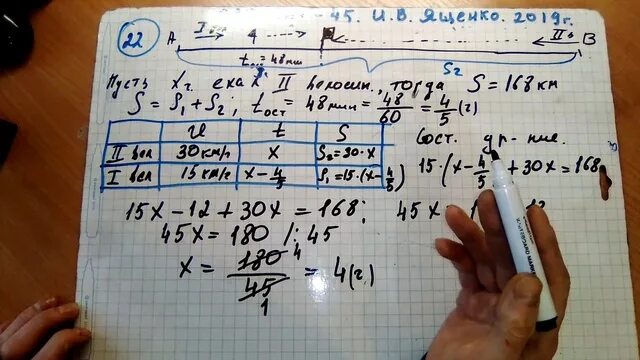 - 45. И.В. Ященко. 2019г.
22 A I B
II B
t ост = 48 мин S2
Пусть x г. ехал II велосип., тогда S = 168 км
S = S1 + S2; t ост = 48 мин = 48/60 = 4/5 (г)
v t S
II вел 30 км/г x S2 = 30·x
I вел 15 км/г x - 4/5 S1 = 15·(x - 4/5)
Сост. ур-ние.
15·(x - 4/5) + 30x = 168
15x - 12 + 30x = 168; 45x =
45x = 180 /: 45
x = 180/45 = 4 (г.)
4
1